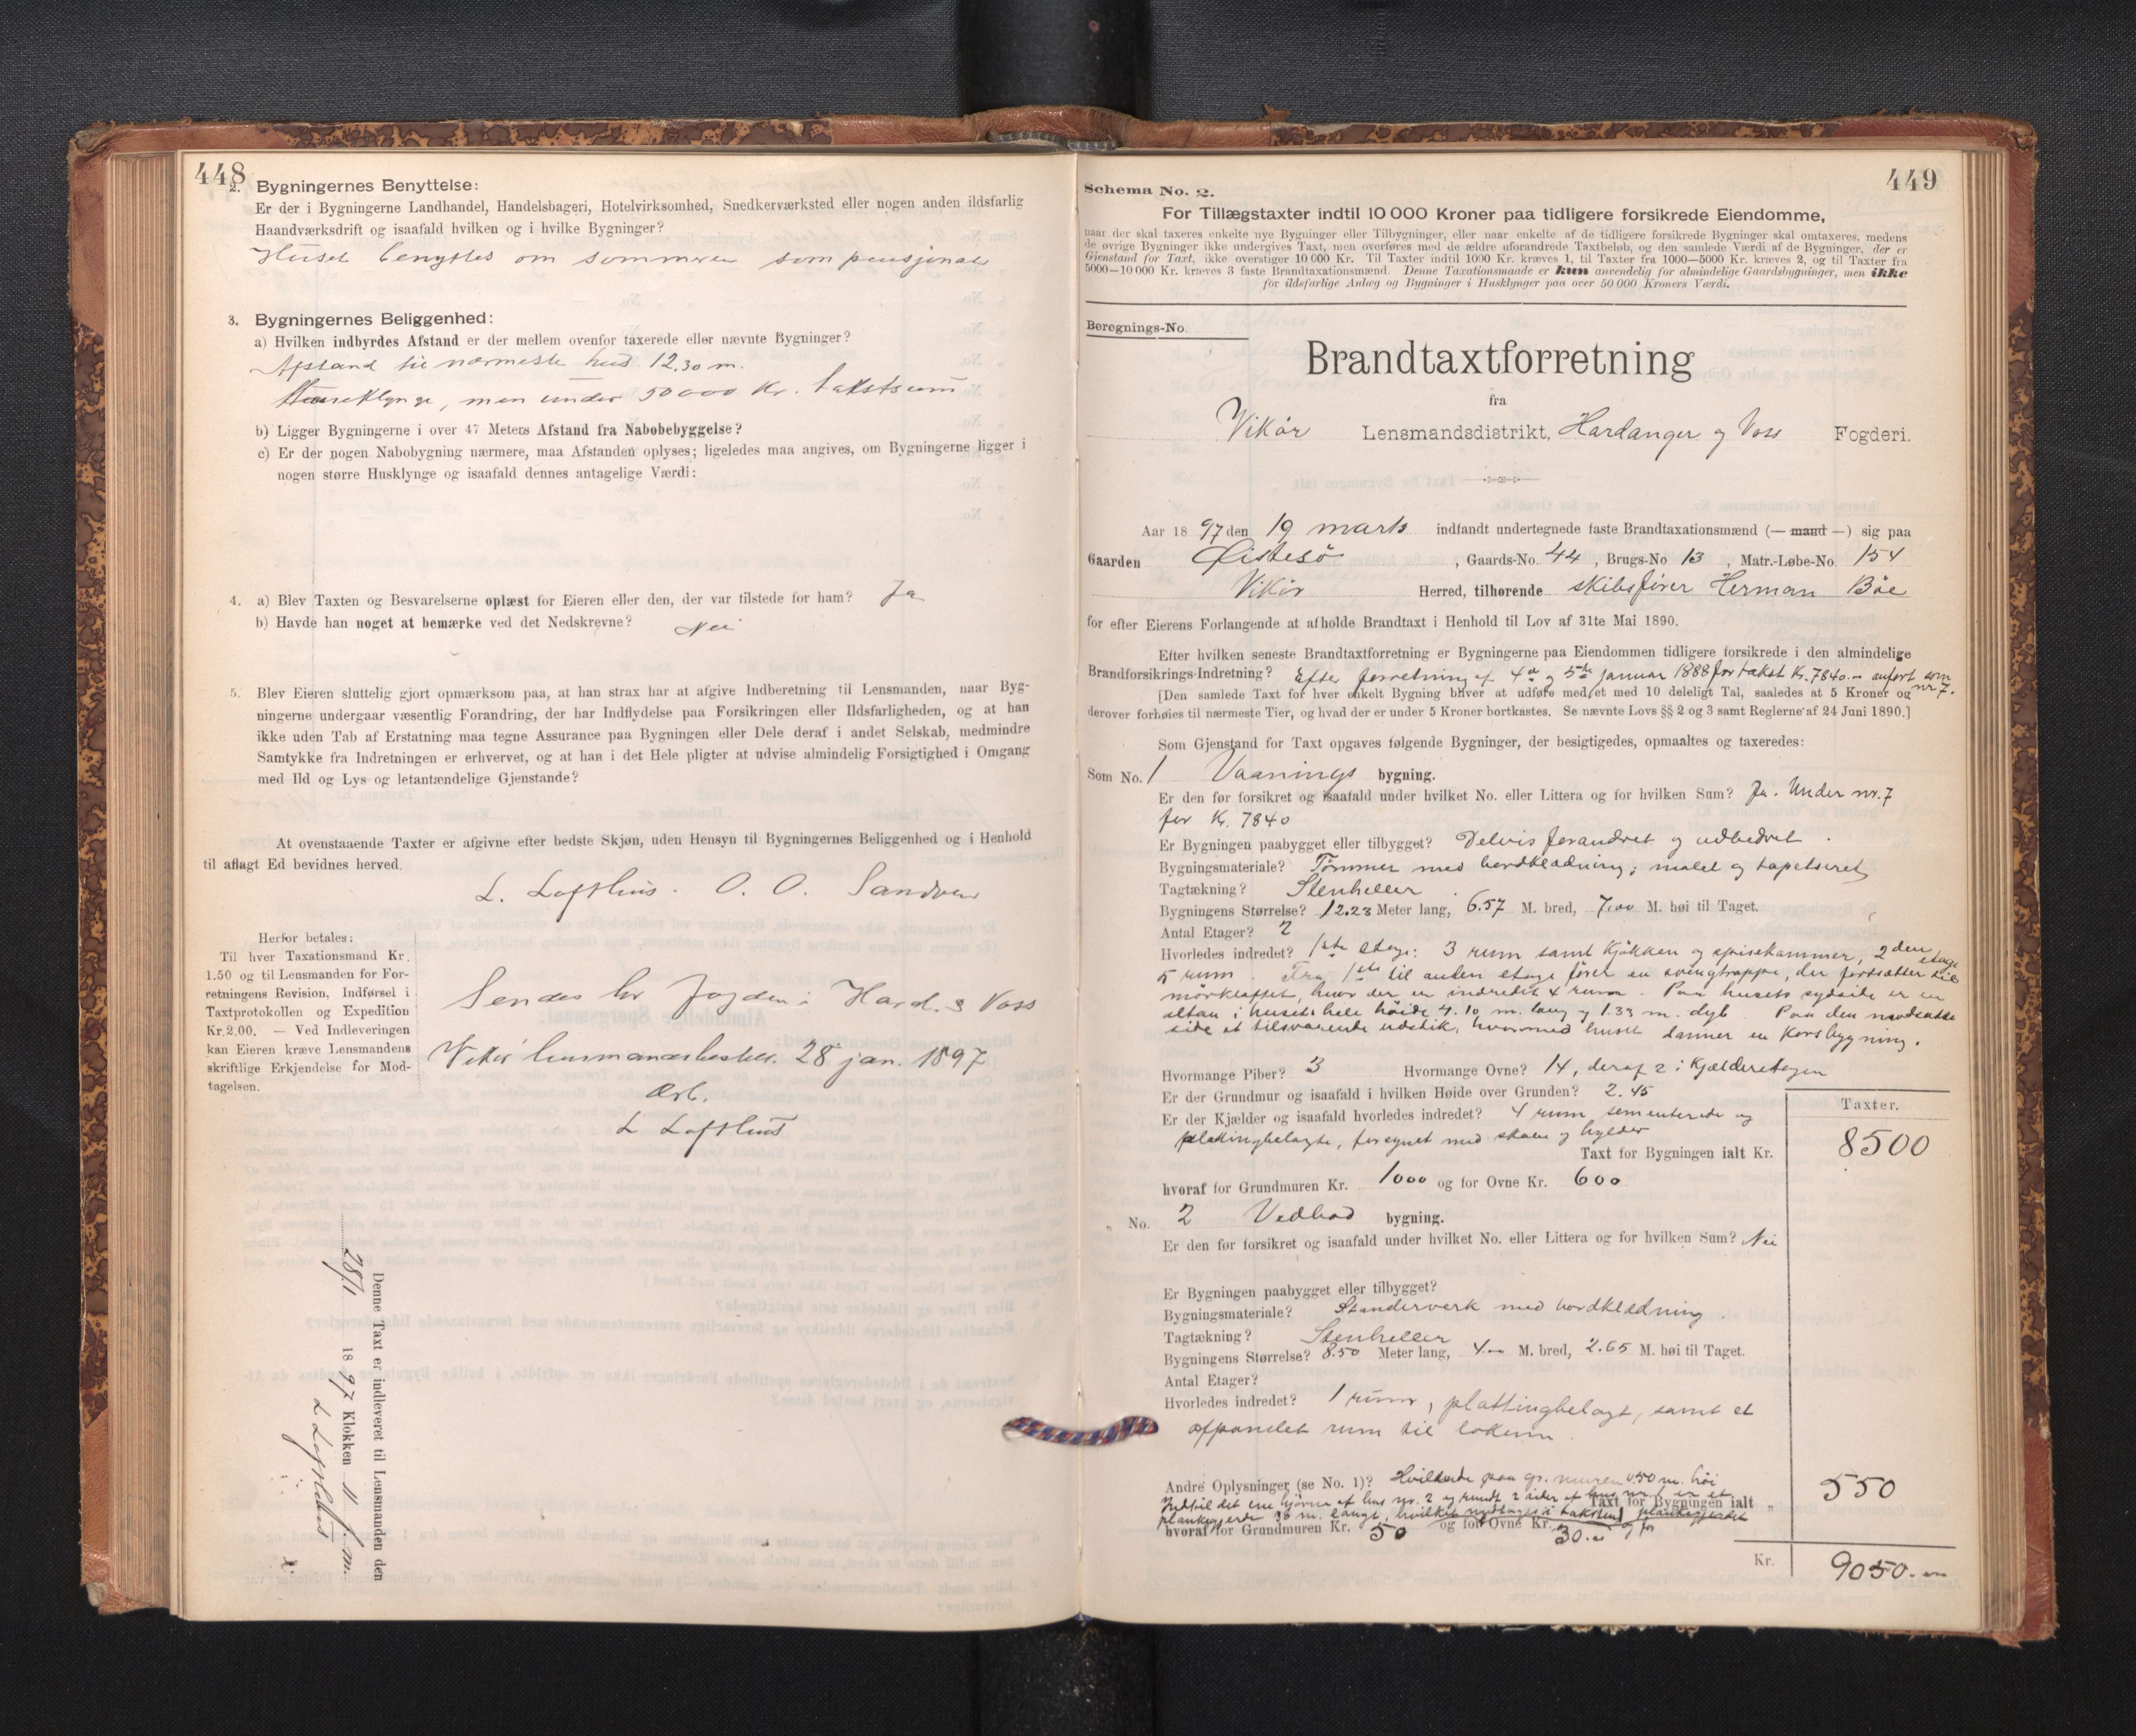 448
2. Bygningernes Benyttelse:
Er der i Bygningerne Landhandel, Handelsbageri, Hotelvirksomhed, Snedkerværksted eller nogen anden ildsfarlig
Haandværksdrift og isaafald hvilken og i hvilke Bygninger?
Huset benyttes om sommeren som pensjonat
3. Bygningernes Beliggenhed:
a) Hvilken indbyrdes Afstand er der mellem ovenfor taxerede eller nævnte Bygninger?
Afstand til nærmeste hus 12.30 m.
Huseklynge, men under 50000 Kr. takstsum
b) Ligger Bygningerne i over 47 Meters Afstand fra Nabobebyggelse?
c) Er der nogen Nabobygning nærmere, maa Afstanden oplyses; ligeledes maa angives, om Bygningerne ligger i
nogen større Husklynge og isaafald dennes antagelige Værdi:
4. a) Blev Taxten og Besvarelserne oplæst for Eieren eller den, der var tilstede for ham? Ja
b) Havde han noget at bemærke ved det Nedskrevne? Nei
5. Blev Eieren sluttelig gjort opmærksom paa, at han strax har at afgive Indberetning til Lensmanden, naar Byg-
ningerne undergaar væsentlig Forandring, der har Indflydelse paa Forsikringen eller Ildsfarligheden, og at han
ikke uden Tab af Erstatning maa tegne Assurance paa Bygningen eller Dele deraf i andet Selskab, medmindre
Samtykke fra Indretningen er erhvervet, og at han i det Hele pligter at udvise almindelig Forsigtighed i Omgang
med Ild og Lys og letantændelige Gjenstande?
At ovenstaaende Taxter er afgivne efter bedste Skjøn, uden Hensyn til Bygningernes Beliggenhed og i Henhold
til aflagt Ed bevidnes herved.
L. Lofthus. O. O. Sandven
Herfor betales:
Til hver Taxationsmand Kr.
1.50 og til Lensmanden for For-
retningens Revision, Indførsel i
Taxtprotokollen og Expedition
Kr. 2.00. — Ved Indleveringen
kan Eieren kræve Lensmandens
skriftlige Erkjendelse for Mod-
tagelsen.
Sendes hr Fogden i Hard. & Voss
Vikør lensmandsbestill. 28 jan. 1897
Ærb.
L Lofthus
Denne Taxt er indleveret til Lensmanden den
28/1 1897 Klokken 11 f.m.
L Lofthus
449
Schema No. 2.
For Tillægstaxter indtil 10 000 Kroner paa tidligere forsikrede Eiendomme,
naar der skal taxeres enkelte nye Bygninger eller Tilbygninger, eller naar enkelte af de tidligere forsikrede Bygninger skal omtaxeres, medens
de øvrige Bygninger ikke undergives Taxt, men overføres med de ældre uforandrede Taxtbeløb, og den samlede Værdi af de Bygninger, der er
Gjenstand for Taxt, ikke overstiger 10 000 Kr. Til Taxter indtil 1000 Kr. kræves 1, til Taxter fra 1000—5000 Kr. kræves 2, og til Taxter fra
5000—10 000 Kr. kræves 3 faste Brandtaxationsmænd. Denne Taxationsmaade er kun anvendelig for almindelige Gaardsbygninger, men ikke
for ildsfarlige Anlæg og Bygninger i Husklynger paa over 50 000 Kroners Værdi.
Beregnings-No.
Brandtaxtforretning
fra
Vikør Lensmandsdistrikt, Hardanger og Voss Fogderi.
Aar 1897 den 19 marts indfandt undertegnede faste Brandtaxationsmænd (— mand —) sig paa
Gaarden Østesø, Gaards-No. 44, Brugs-No 13, Matr.-Løbe-No. 154
Vikør Herred, tilhørende skibsfører Herman Bøe
for efter Eierens Forlangende at afholde Brandtaxt i Henhold til Lov af 31te Mai 1890.
Efter hvilken seneste Brandtaxtforretning er Bygningerne paa Eiendommen tidligere forsikrede i den almindelige
Brandforsikrings-Indretning? Efter forretning af 4de og 5te januar 1888 for takst Kr. 7840.- anført som nr 7.
[Den samlede Taxt for hver enkelt Bygning bliver at udføre med et med 10 deleligt Tal, saaledes at 5 Kroner og
derover forhøies til nærmeste Tier, og hvad der er under 5 Kroner bortkastes. Se nævnte Lovs §§ 2 og 3 samt Reglerne af 24 Juni 1890.]
Som Gjenstand for Taxt opgaves følgende Bygninger, der besigtigedes, opmaaltes og taxeredes:
Som No. 1 Vaanings bygning.
Er den før forsikret og isaafald under hvilket No. eller Littera og for hvilken Sum? Ja. Under nr. 7
for Kr. 7840
Er Bygningen paabygget eller tilbygget? Delvis forandret og udbedret.
Bygningsmateriale? Tømmer med bordklædning; malet og tapetseret
Tagtækning? Stenheller
Bygningens Størrelse? 12.23 Meter lang, 6.57 M. bred, 7.00 M. høi til Taget.
Antal Etager? 2
Hvorledes indredet? 1ste etage: 3 rum samt kjøkken og spisekammer, 2den etage
5 rum. Fra 1ste til anden etage fører en svingtrappe, der fortsætter til
mørkloftet, hvor der er indredet 4 rum. Paa husets sydside er en
altan i husets hele høide 4.10 m. lang og 1.33 m. dyb. Paa den modsatte
side et tilsvarende udstik, hvormed huset danner en korsbygning.
Hvormange Piber? 3 Hvormange Ovne? 14, deraf 2 i Kjælderetagen
Er der Grundmur og isaafald i hvilken Høide over Grunden? 2.45
Er der Kjælder og isaafald hvorledes indredet? 4 rum sementerede og
plattingbelagte, forsynet med skabe og hylder
Taxter.
Taxt for Bygningen ialt Kr. 8500
hvoraf for Grundmuren Kr. 1000 og for Ovne Kr. 600
" No. 2 Vedbod bygning.
Er den før forsikret og isaafald under hvilket No. eller Littera og for hvilken Sum? Nei
Er Bygningen paabygget eller tilbygget?
Bygningsmateriale? Standerverk med bordklædning.
Tagtækning? Stenheller
Bygningens Størrelse? 8.50 Meter lang, 4 — M. bred, 2.65 M. høi til Taget.
Antal Etager?
Hvorledes indredet? 1 rum, plattingbelagt, samt et
afpanelet rum til lokum.
Andre Oplysninger (se No. 1)? Hvilende paa gr. muren 0.50 m. høi
Indtil det ene hjørne af hus nr. 2 og rundt 2 sider af hus nr. 1 er et
plankegjerde 36 m. langt, hvilket medtages i taksten plankegjerdet
Taxt for Bygningen ialt " 550
hvoraf for Grundmuren Kr. 50 og for Ovne Kr. og for 30.-
Kr. 9050.-